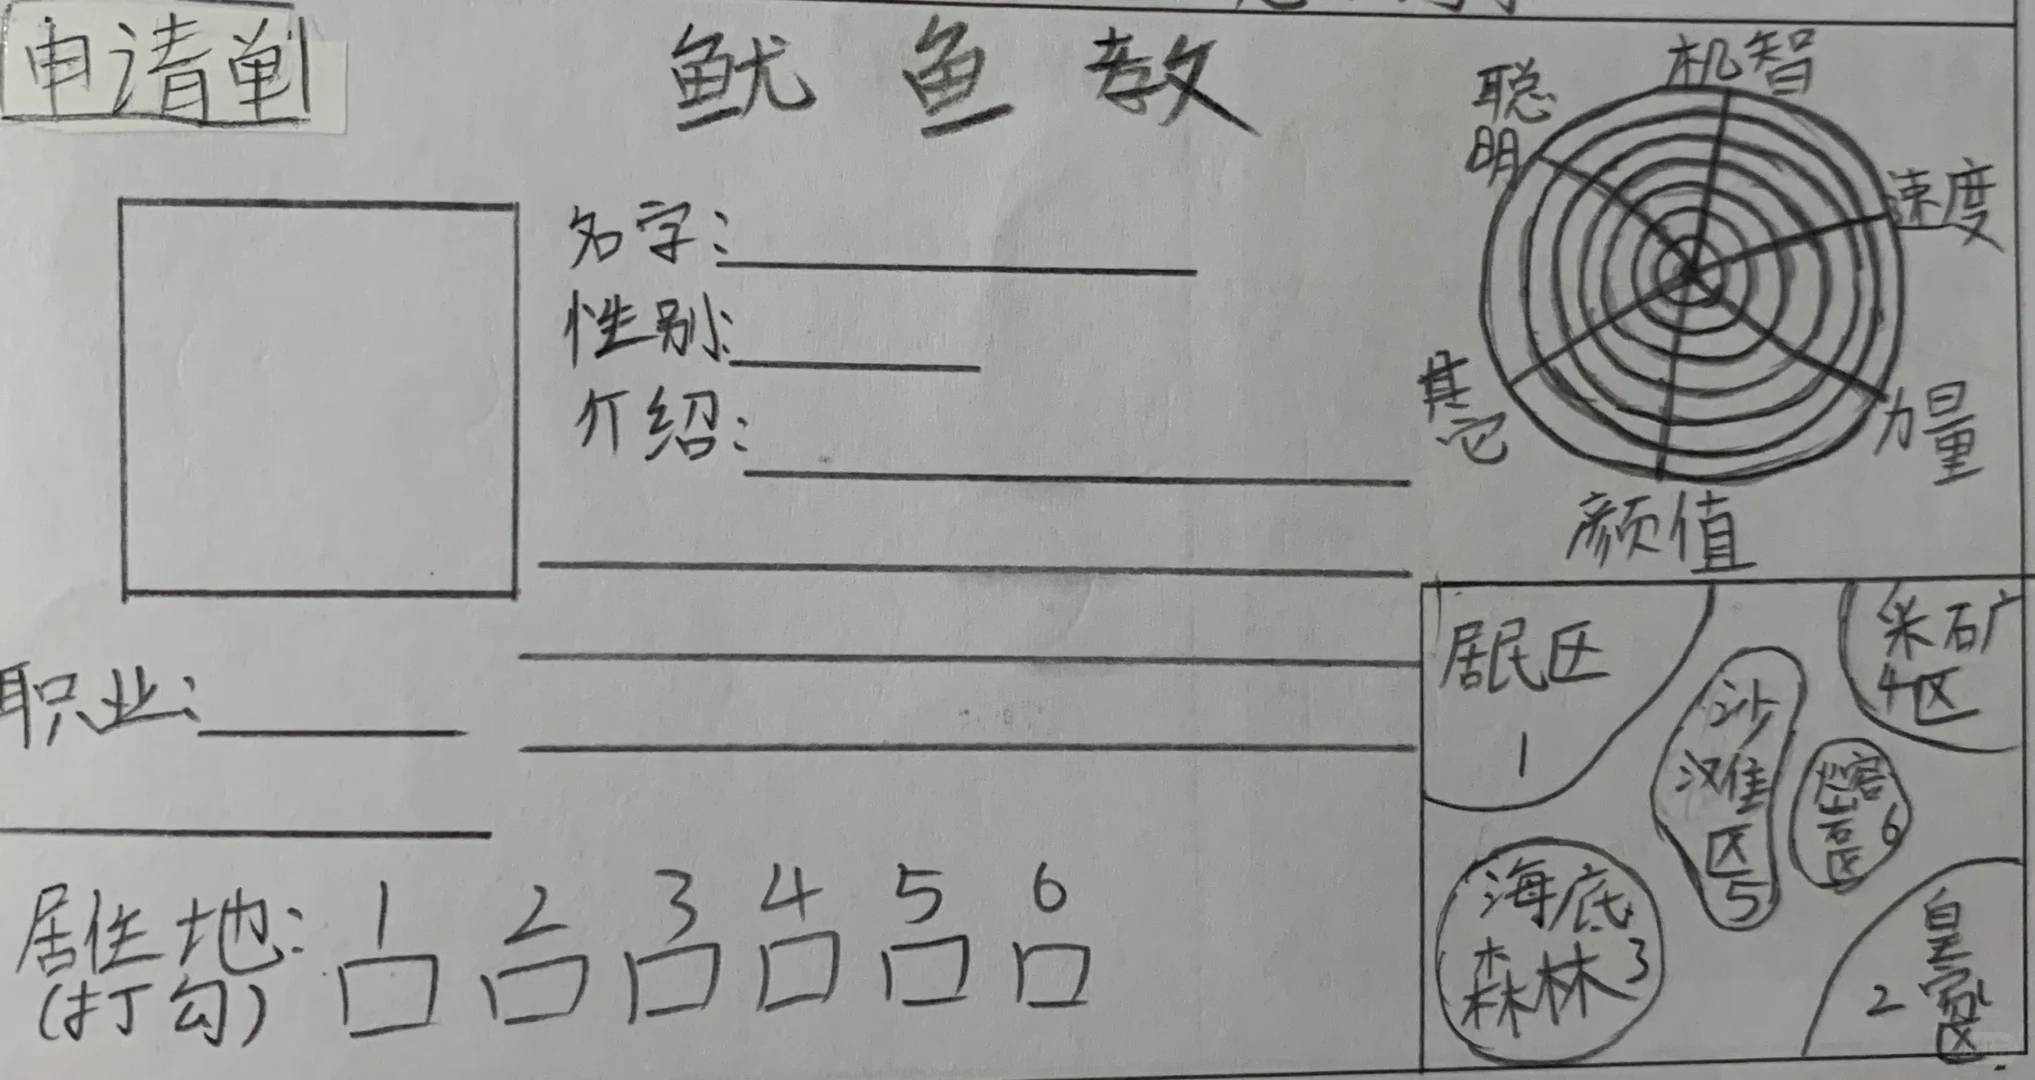 申请单
鱿鱼教
名字：
性别：
介绍：
职业：
居住地：
(打勾)
1 2 3 4 5 6
机智
聪明
速度
其它
力量
颜值
居民区
1
采矿
4区
沙
滩
区
5
6
海底
森林3
皇
家
区
2